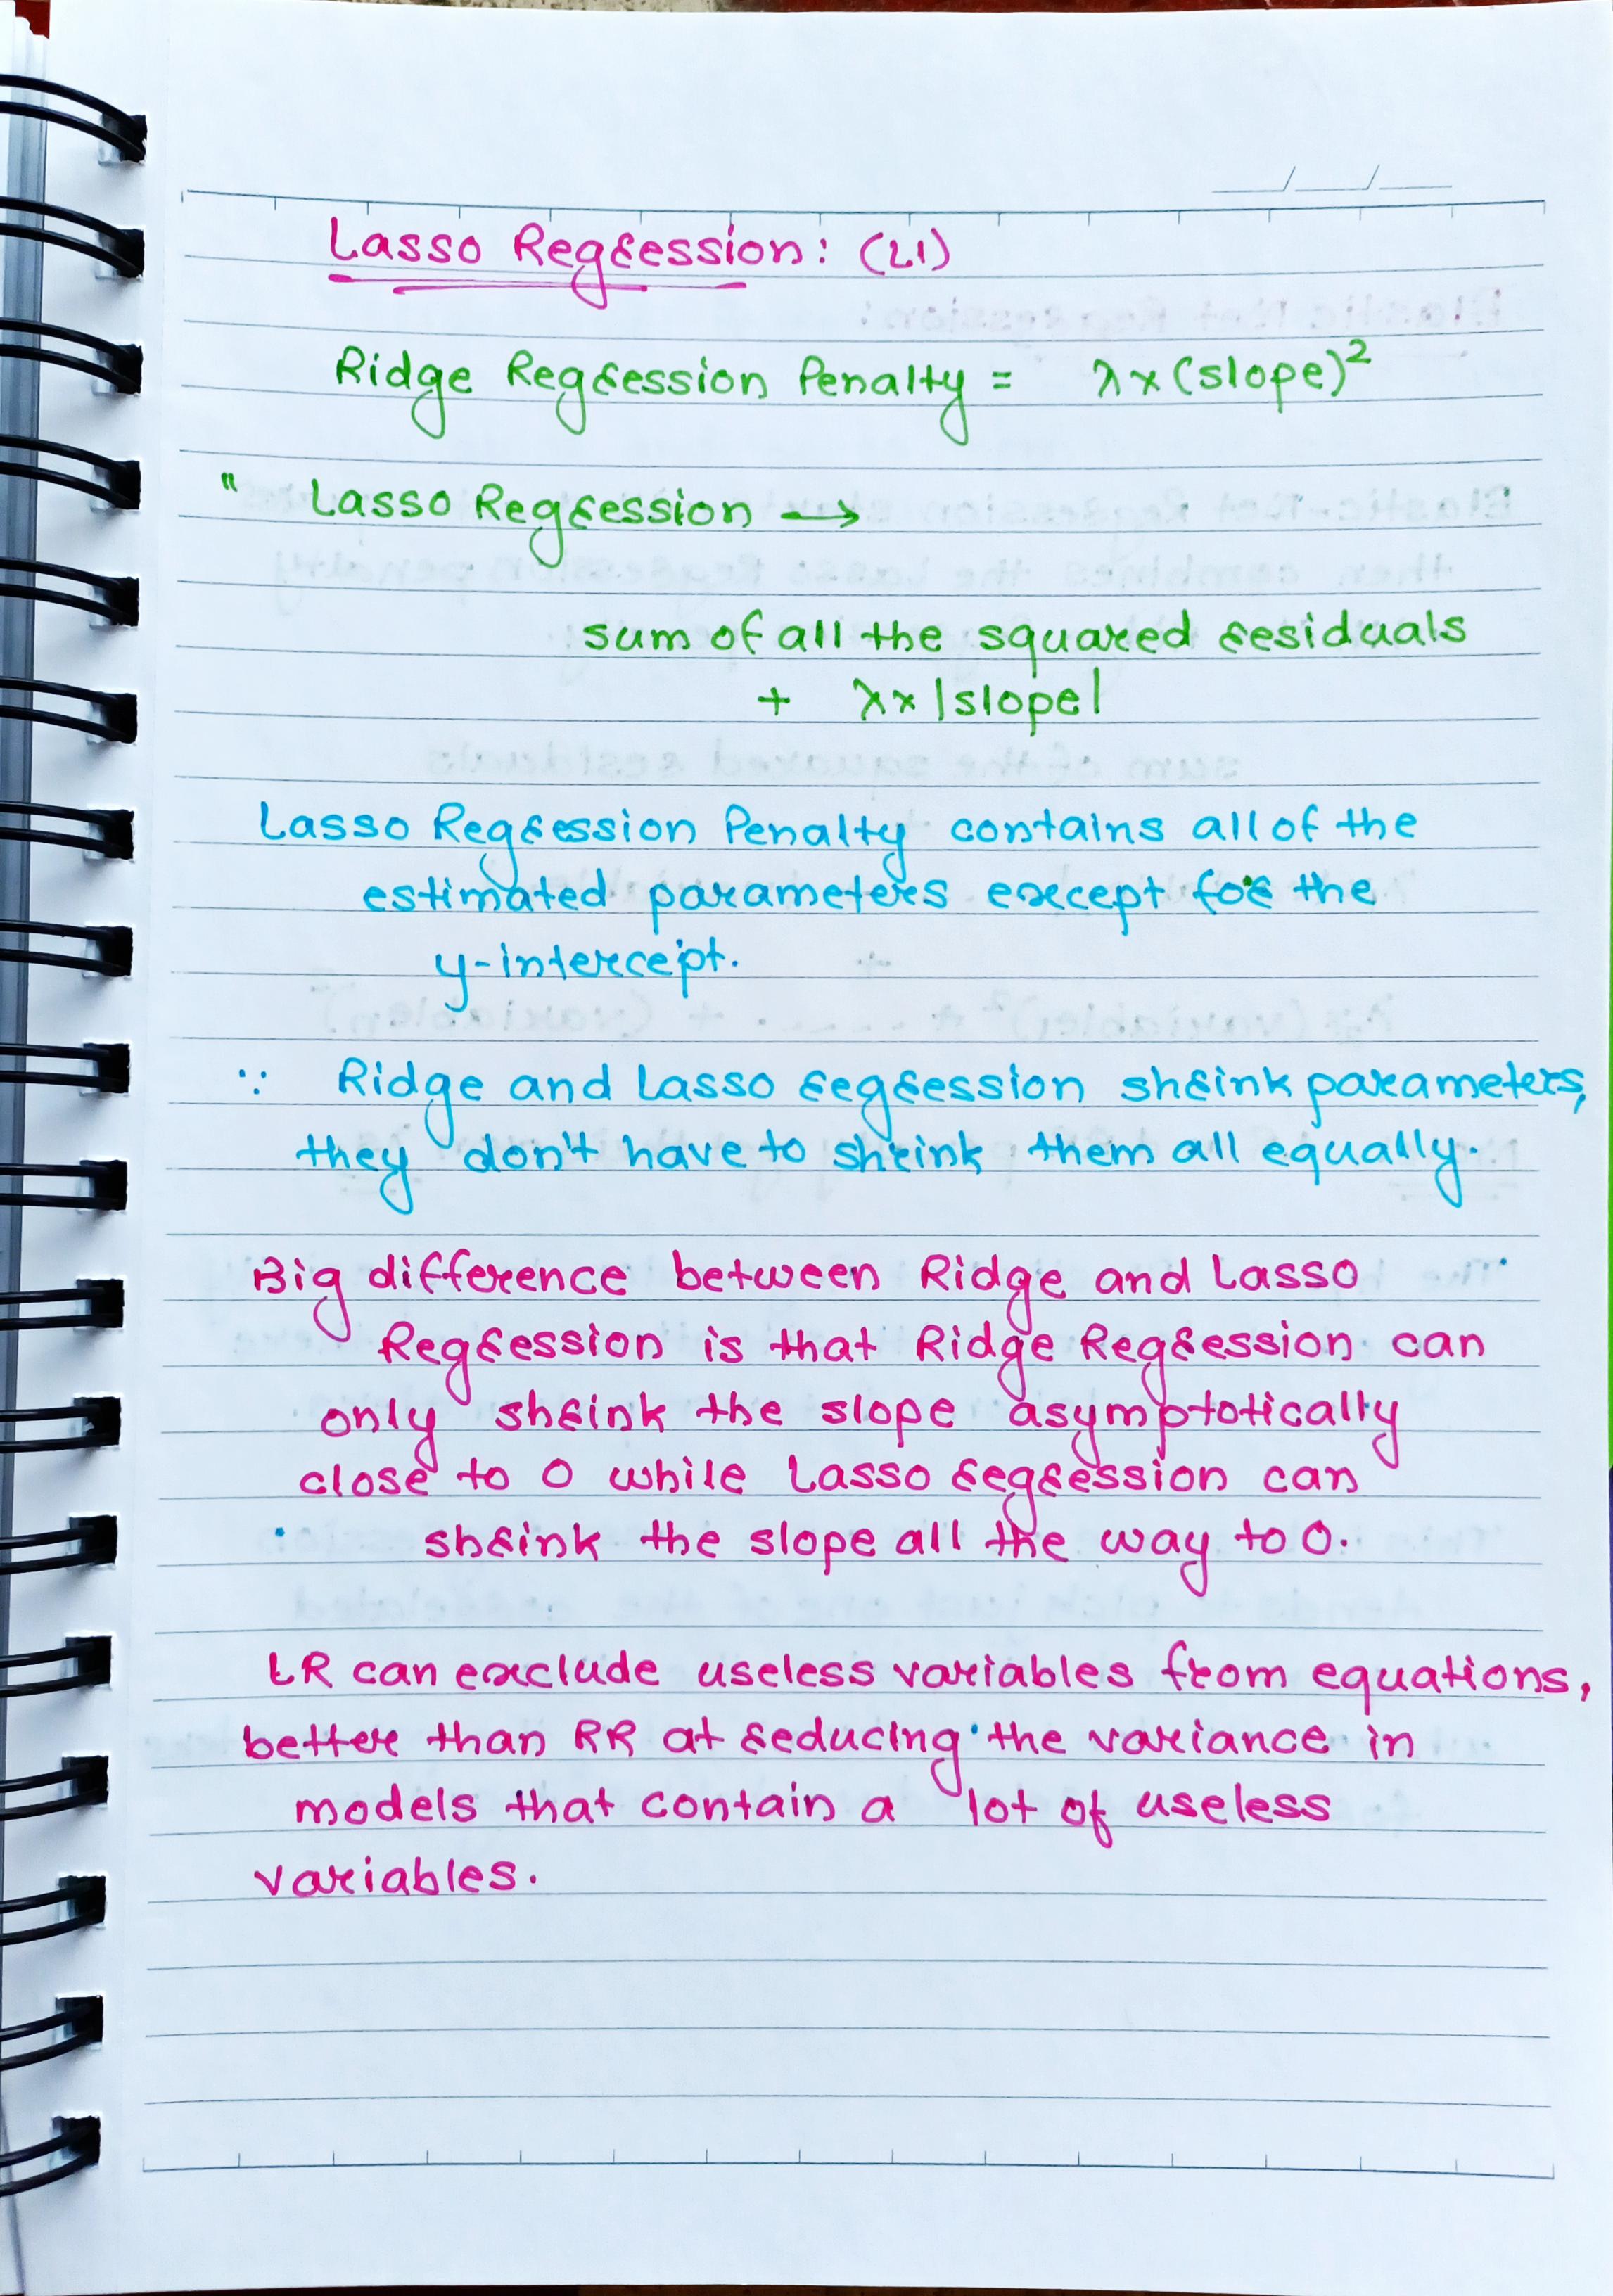 Lasso Regression: (L1)
Ridge Regression Penalty = λ x (slope)²
" Lasso Regression →
sum of all the squared residuals
+ λ x |slope|
Lasso Regression Penalty contains all of the
estimated parameters except for the
y-intercept.
∵ Ridge and Lasso regression shrink parameters,
they don't have to shrink them all equally.
Big difference between Ridge and Lasso
Regression is that Ridge Regression can
only shrink the slope asymptotically
close to 0 while Lasso regression can
shrink the slope all the way to 0.
LR can exclude useless variables from equations,
better than RR at reducing the variance in
models that contain a lot of useless
variables.